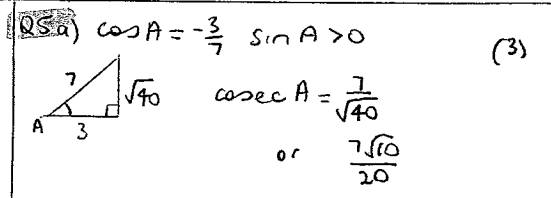 Q5a) cos A = -3/7 sin A >0 (3)
7 √40
A 3
cosec A = 7/√40
or 7√10/20